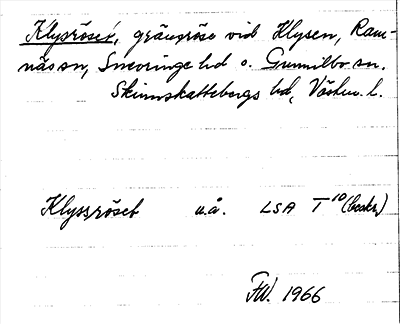 Klysröset, gränsröse vid Klysen, Ram-
näs sn, Snevringe hd o. Gunnilbo sn.
Skinnskattebergs hd, Västm. l.
Klyssröset u.å. LSA T 10 (beskr.)
FW. 1966